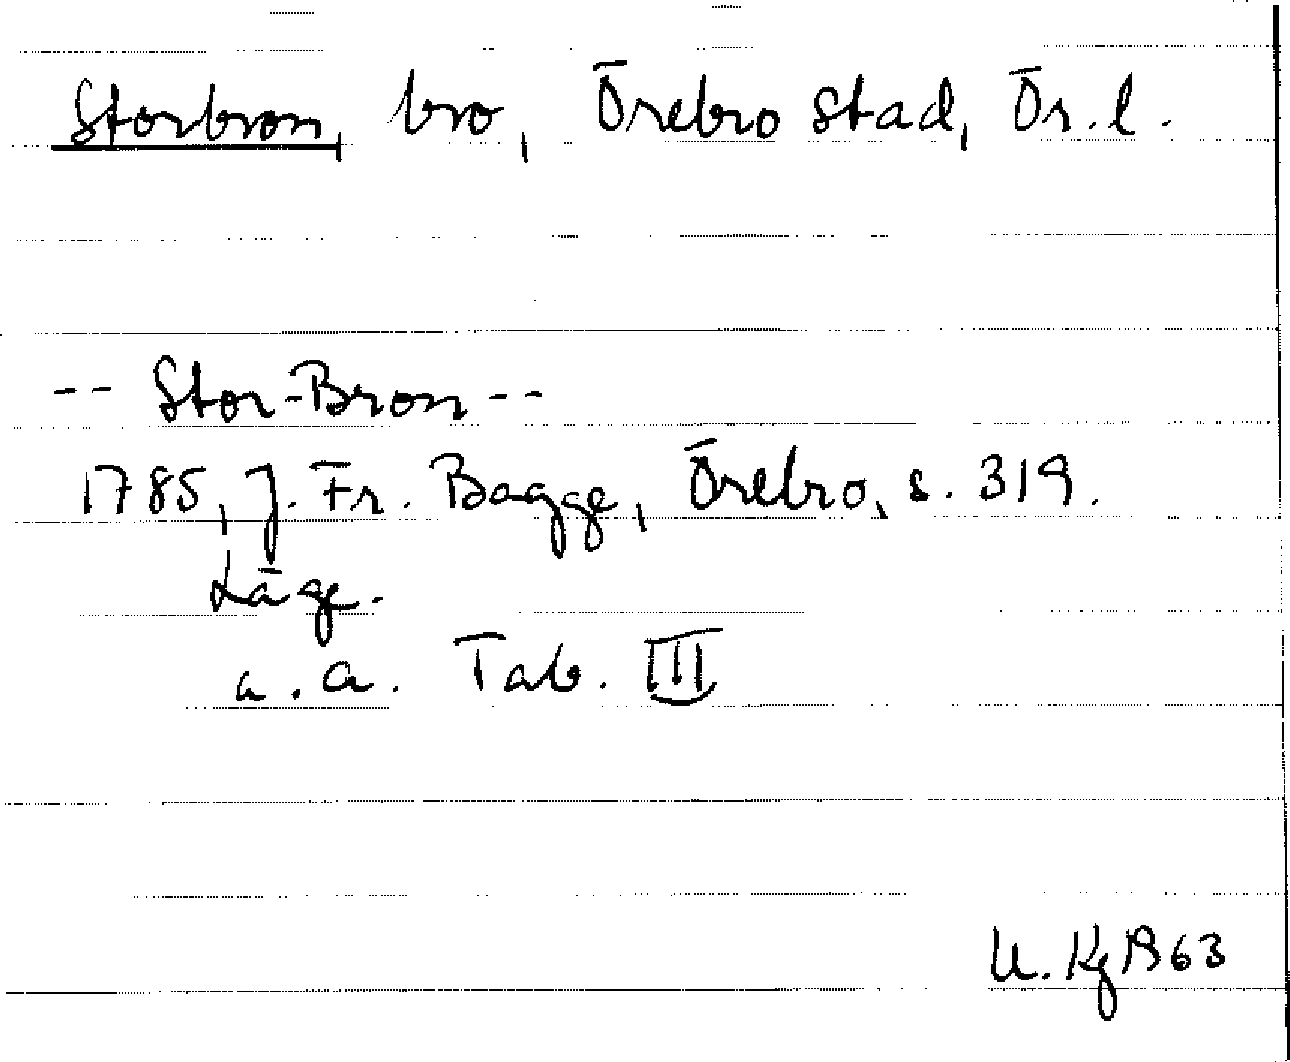 Storbron, bro, Örebro stad, Ör. l.
-- Stor-Bron --
1785, J. Fr. Bagge, Örebro, s. 319.
Läge.
a. a. Tab. III
U. Kg 1963